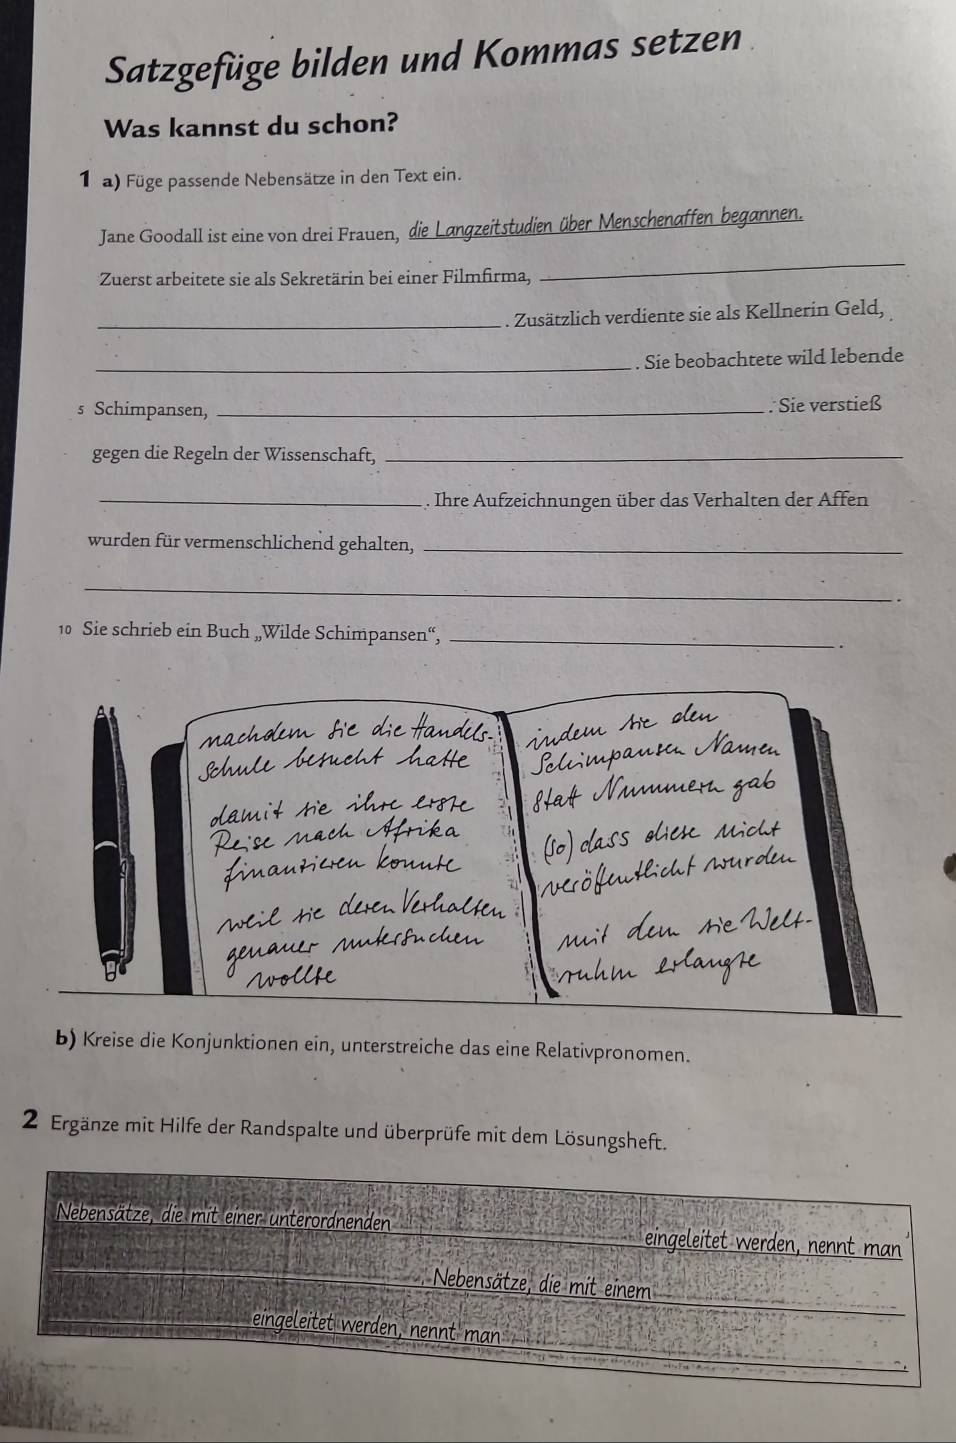 Satzgefüge bilden und Kommas setzen
Was kannst du schon?
1 a) Füge passende Nebensätze in den Text ein.
Jane Goodall ist eine von drei Frauen, die Langzeitstudien über Menschenaffen begannen.
Zuerst arbeitete sie als Sekretärin bei einer Filmfirma,
. Zusätzlich verdiente sie als Kellnerin Geld,
. Sie beobachtete wild lebende
5 Schimpansen, . Sie verstieß
gegen die Regeln der Wissenschaft,
. Ihre Aufzeichnungen über das Verhalten der Affen
wurden für vermenschlichend gehalten,
.
10 Sie schrieb ein Buch „Wilde Schimpansen“, .
nachdem sie die Handels-
schule besucht hatte
damit sie ihre erste
Reise nach Afrika
finanzieren konnte
weil sie deren Verhalten
genauer untersuchen
wollte
indem sie den
Schimpansen Namen
statt Nummern gab
(so) dass diese nicht
veröffentlicht wurden
mit dem sie Welt-
ruhm erlangte
b) Kreise die Konjunktionen ein, unterstreiche das eine Relativpronomen.
2 Ergänze mit Hilfe der Randspalte und überprüfe mit dem Lösungsheft.
Nebensätze, die mit einer unterordnenden
eingeleitet werden, nennt man
. Nebensätze, die mit einem
eingeleitet werden, nennt man
.